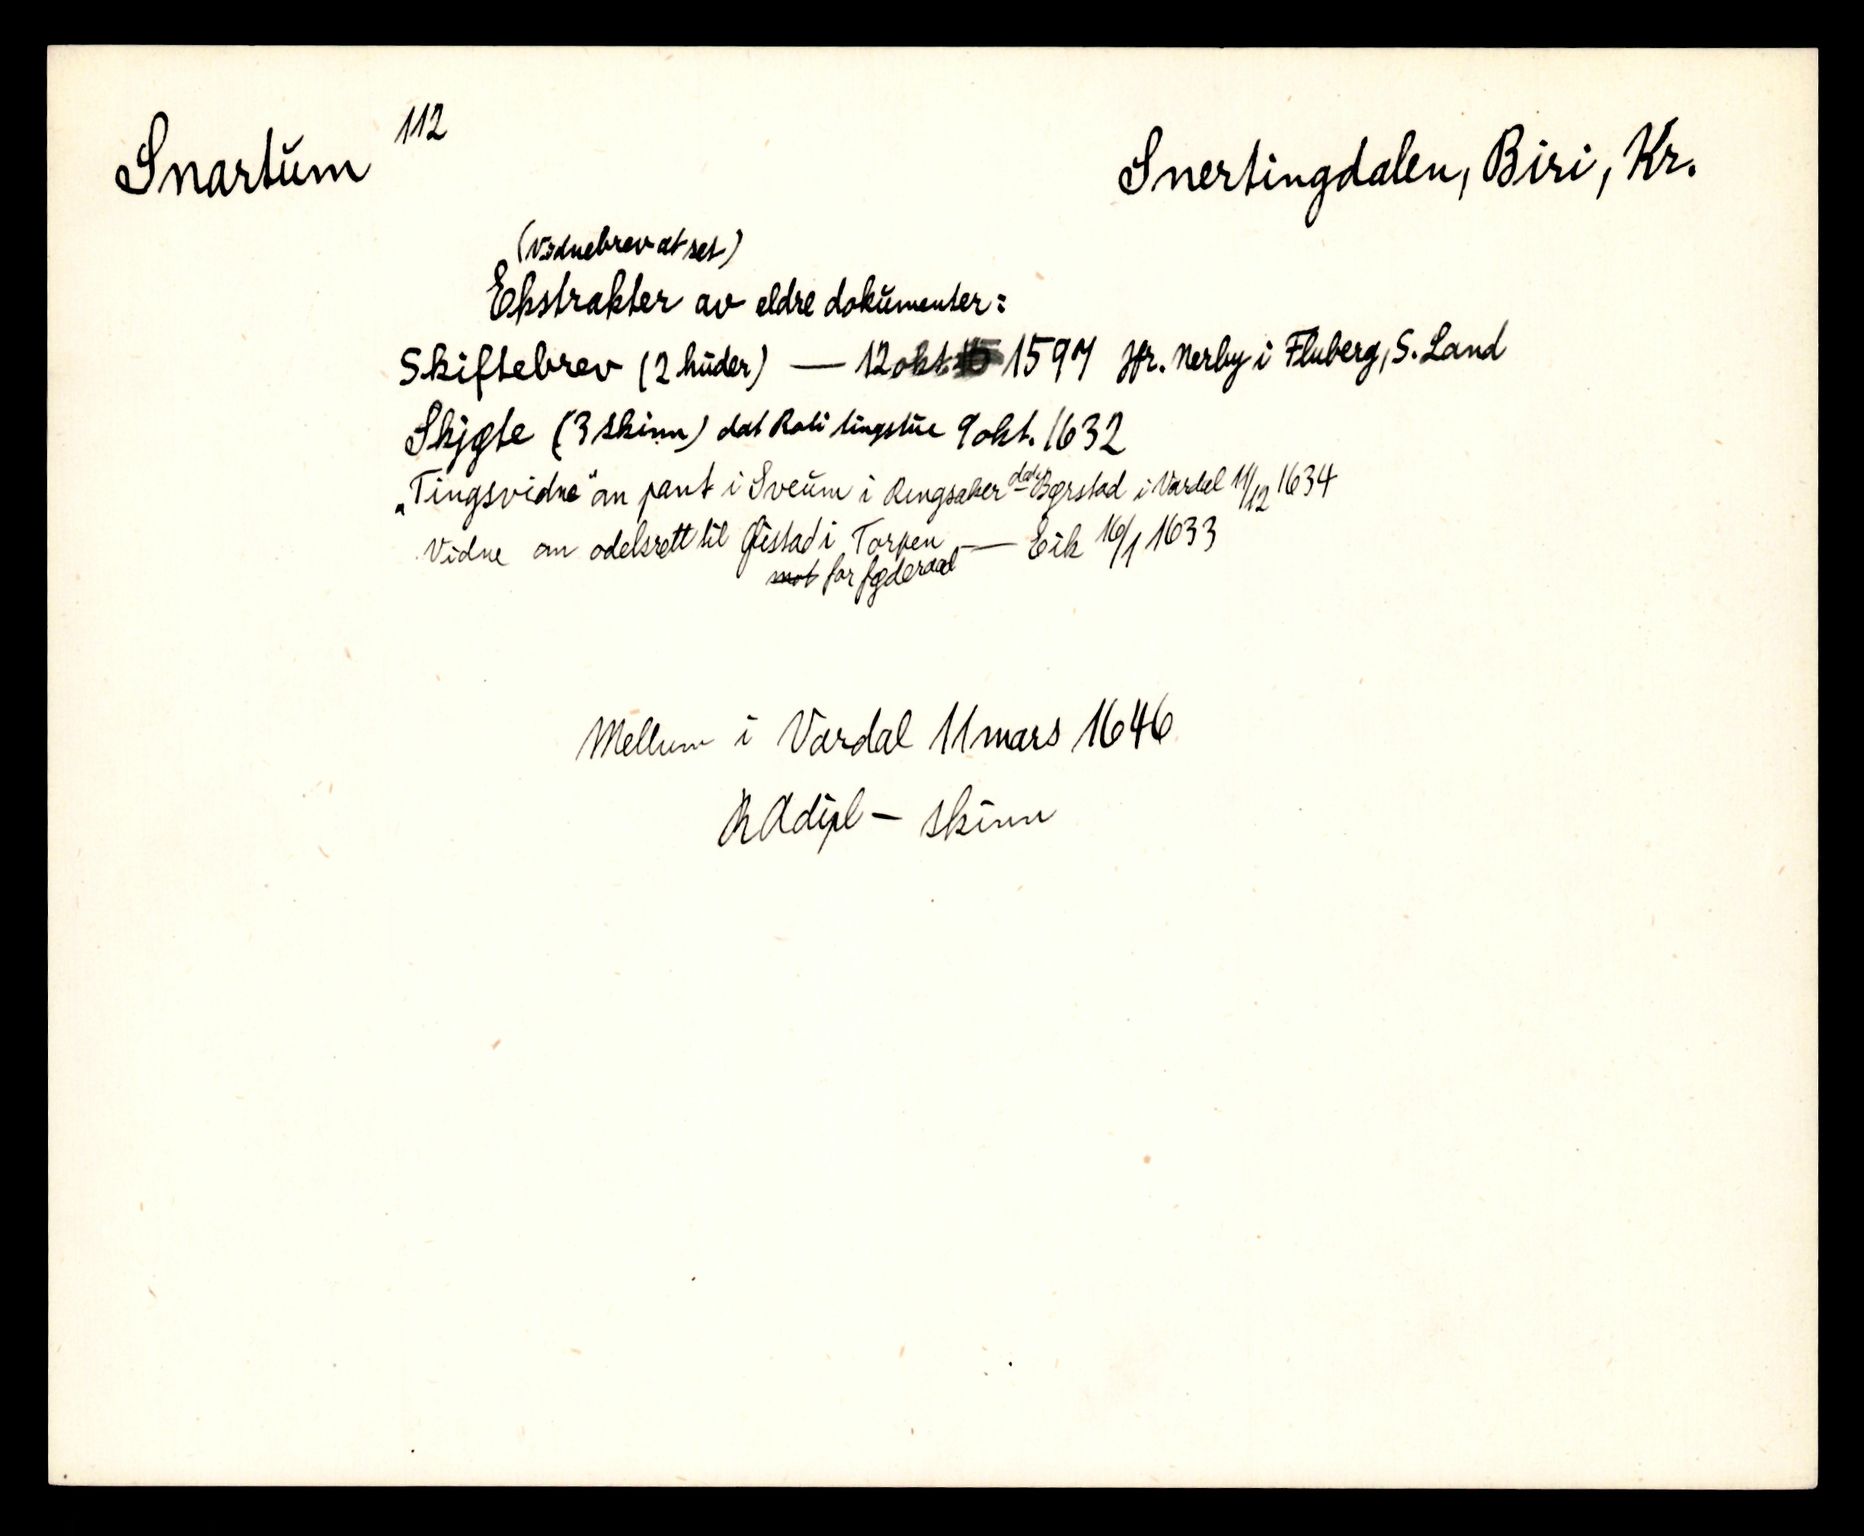 Snartum 112
Snertingdalen, Biri, Kr.
(Vidnebrev at set)
Ekstrakter av eldre dokumenter:
Skiftebrev (2 huder) — 12 okt. 1597 Hr. Nerby i Fluberg, S. Land
Skjøte (3 skinn) dat Roli tingstue 9 okt. 1632
"Tingsvidne" om pant i Sveum i Ringsaker dat. Børstad i Vardal 11/12 1634
Vidne om odelsrett til i Torpen — Eik 16/1 1633
mot for føderaad
Mellum i Vardal 11 mars 1646
RA dipl — skinn